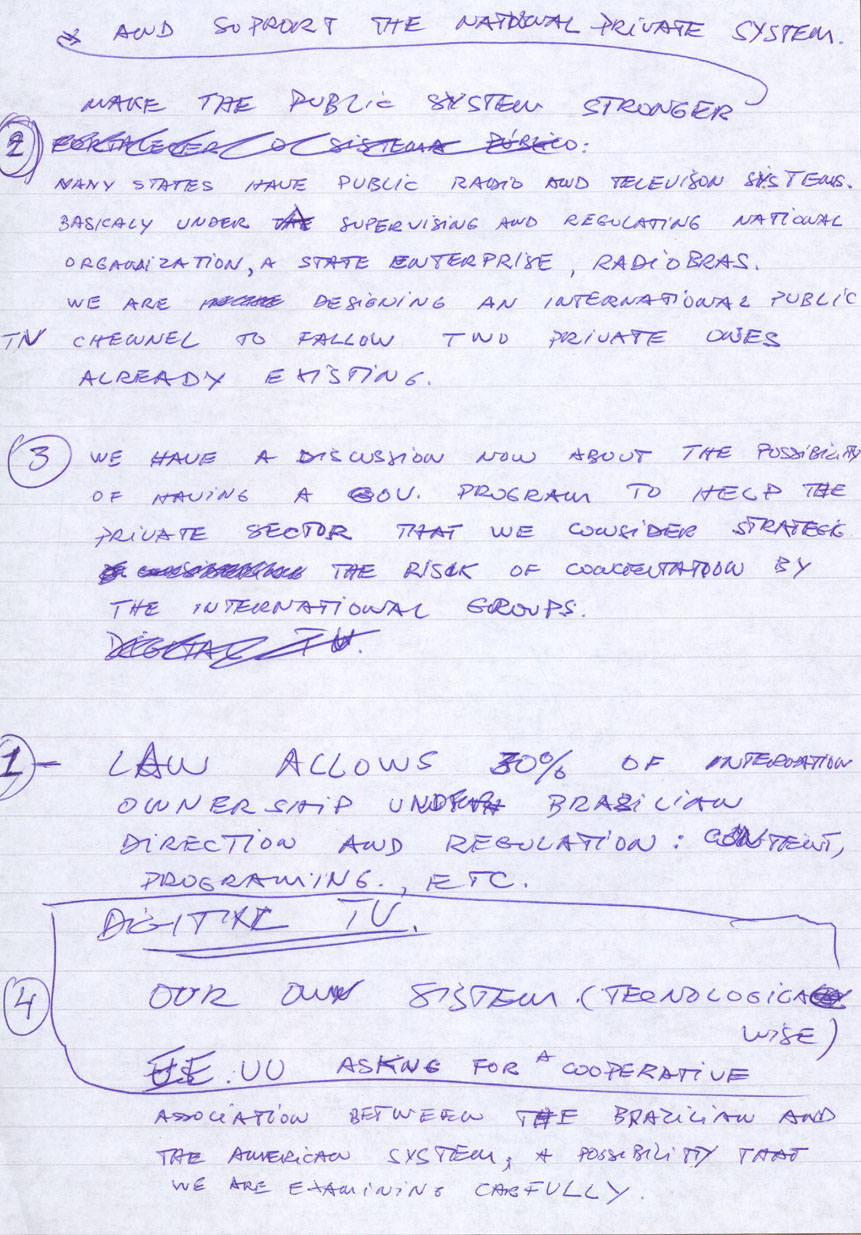 * AND SUPPORT THE NATIONAL PRIVATE SYSTEM.
MAKE THE PUBLIC SYSTEM STRONGER
2 FORTALECER O SISTEMA PÚBLICO:
MANY STATES HAVE PUBLIC RADIO AND TELEVISON SYSTEMS.
BASICALY UNDER THE SUPERVISING AND REGULATING NATIONAL
ORGANIZATION, A STATE ENTERPRISE, RADIOBRAS.
WE ARE DESIGNING AN INTERNATIONAL PUBLIC
TV CHENNEL TO FALLOW TWO PRIVATE ONES
ALREADY EXISTING.
3 WE HAVE A DISCUSSION NOW ABOUT THE POSSIBILITY
OF HAVING A GOV. PROGRAM TO HELP THE
PRIVATE SECTOR THAT WE CONSIDER STRATEGIC
THE RISK OF CONCENTATION BY
THE INTERNATIONAL GROUPS.
DIGITAL TV.
1 - LAW ALLOWS 30% OF INTERNATION
OWNERSHIP UNDER BRAZILIAN
DIRECTION AND REGULATION: CONTENT,
PROGRAMING., ETC.
DIGITAL TV.
4 OUR OWN SISTEM. (TECNOLOGICAL
WISE)
UU ASKING FOR A COOPERATIVE
ASSOCIATION BETWEEN THE BRAZILIAN AND
THE AMERICAN SYSTEM, A POSSIBILITY THAT
WE ARE EXAMINING CARFULLY.